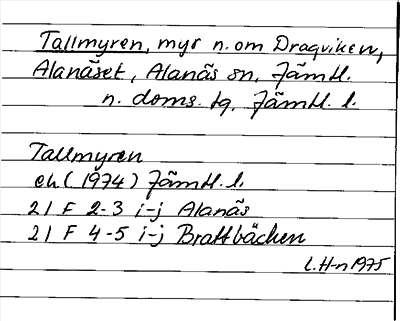 Tallmyren, myr n. om Dragviken,
Alanäset, Alanäs sn, Jämtl.
n. doms. tg, Jämtl. l.
Tallmyren
ek (1974) Jämtl. l.
21 F 2-3 i-j Alanäs
21 F 4-5 i-j Brattbäcken
L.H-n 1975